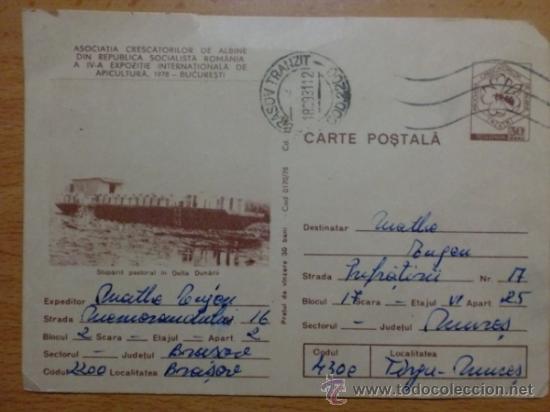 ASOCIAȚIA CRESCĂTORILOR DE ALBINE
DIN REPUBLICA SOCIALISTĂ ROMÂNIA
A IV-A EXPOZIȚIE INTERNAȚIONALĂ DE
APICULTURĂ, 1978 - BUCUREȘTI
BRAȘOV TRANZIT
CARTE POȘTALĂ
30
Stupărit pastoral în Delta Dunării
Prețul de vînzare 30 bani - Cod 0170/78
Destinatar Mathe
Eugen
Strada Înfrățirii Nr. 17
Blocul 17 Scara - Etajul VI Apart. 25
Sectorul - Județul Mureș
Codul 4300 Localitatea Tîrgu-Mureș
Expeditor Mathe Eugen
Strada Memorandului 16
Blocul 2 Scara - Etajul - Apart. 2
Sectorul - Județul Brașov
Codul 2200 Localitatea Brașov
www.todocoleccion.net